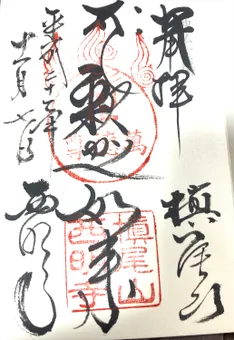 奉拝
槇尾山
釈迦如来
平成二十二年
十一月七日
西明寺
槇尾山
西明寺